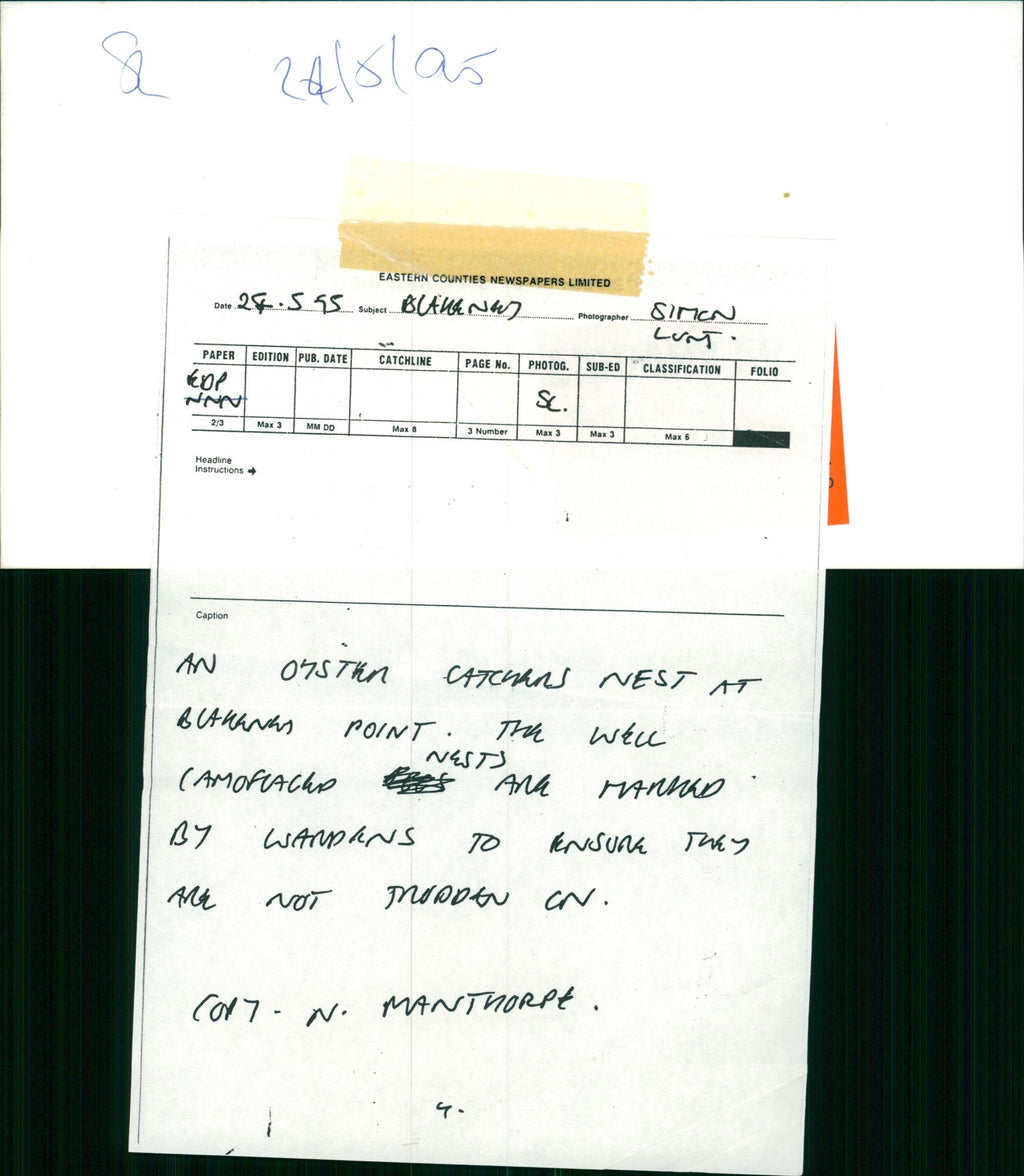 SL 24/5/95
EASTERN COUNTIES NEWSPAPERS LIMITED
Date 24.5 95 Subject BLAKENEY Photographer SIMON
LUNT.
PAPER EDITION PUB. DATE CATCHLINE PAGE No. PHOTOG. SUB-ED CLASSIFICATION FOLIO
EDP
NNN SL.
2/3 Max 3 MM DD Max 8 3 Number Max 3 Max 3 Max 6
Headline
Instructions
Caption
AN OYSTER CATCHERS NEST AT
BLAKENEY POINT. THE WELL
NESTS
CAMOFLAGED ARE MARKED
BY WARDENS TO ENSURE THEY
ARE NOT TRODDEN ON.
COPY - N. MANTHORPE.
4.